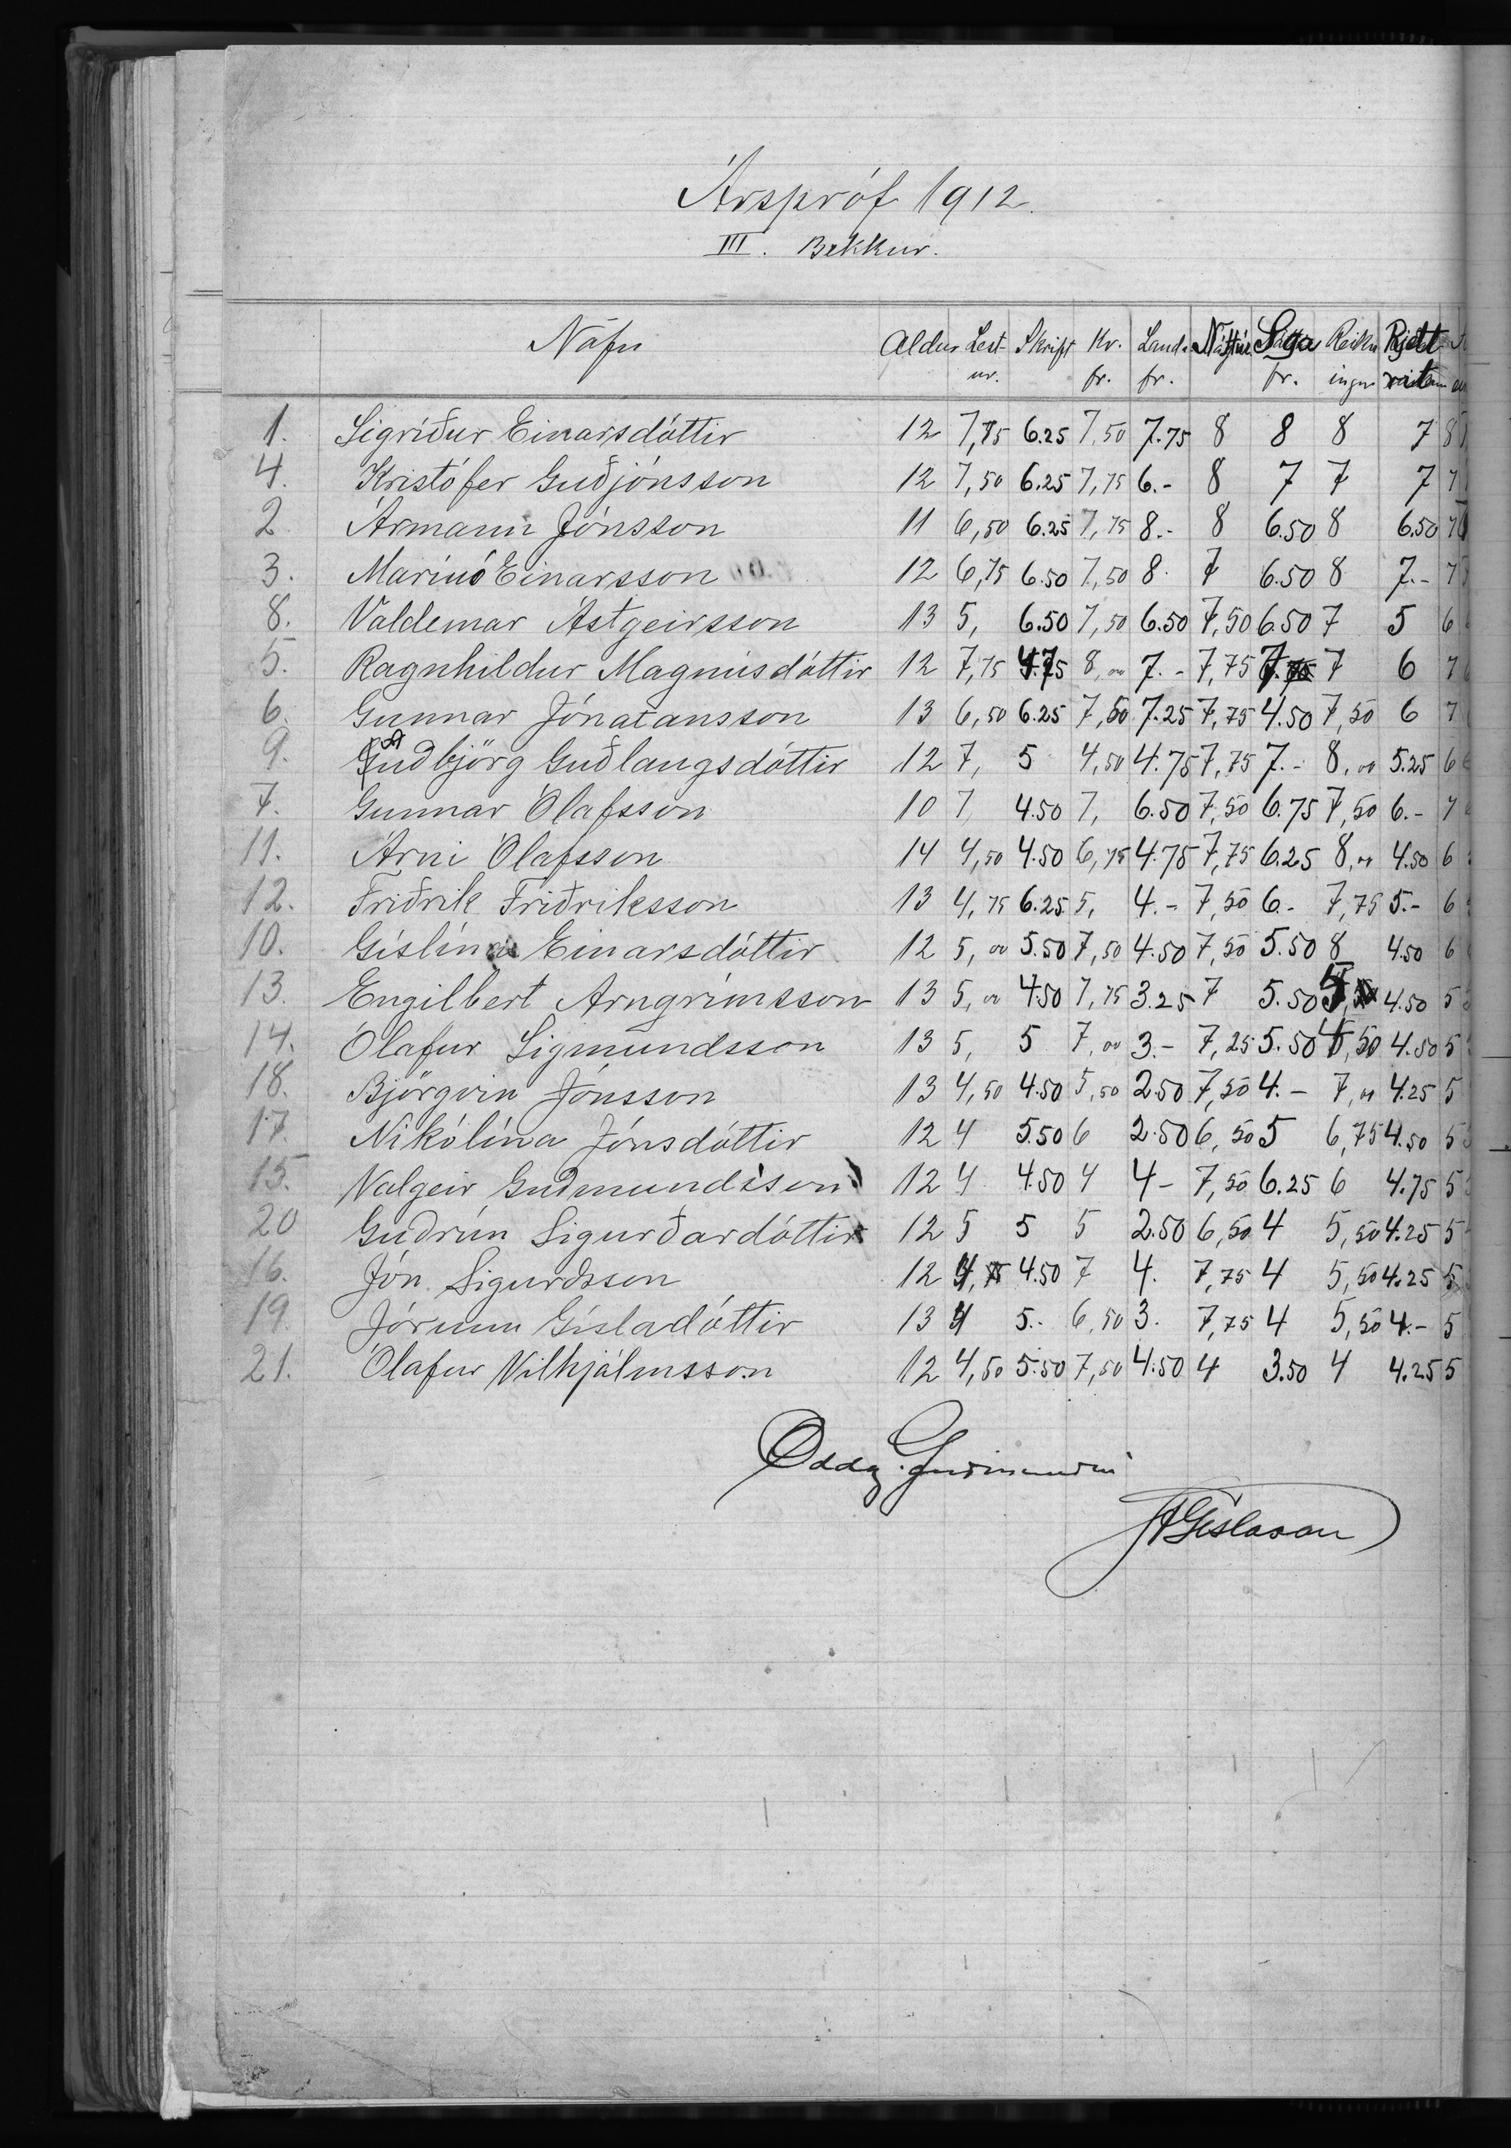 Árspróf 1912.
III. Bekkur.
Nöfn Aldur Lest ur. Skrift Kr. fr. Landa fr. Náttúr Saga fr. Reikn ingur Rjett ritun
1. Sigríður Einarsdóttir 12 7,75 6.25 7,50 7.75 8 8 8 7 8
4. Kristófer Guðjónsson 12 7,50 6.25 7,75 6.- 8 7 7 7 7
2 Ármann Jónsson 11 6,50 6.25 7,75 8.- 8 6.50 8 6.50 7
3. Marinó Einarsson 12 6,75 6.50 7,50 8. 7 6.50 8 7.- 7
8. Valdemar Ástgeirsson 13 5, 6.50 7,50 6.50 7,50 6.50 7 5 6
5. Ragnhildur Magnúsdóttir 12 7,75 4.75 8,00 7.- 7,75 7.75 7 6 7
6. Gunnar Jónatansson 13 6,50 6.25 7,50 7.25 7,75 4.50 7,50 6 7
9. Guðbjörg Guðlaugsdóttir 12 7, 5 4,50 4.75 7,75 7.- 8,00 5.25 6
7. Gunnar Ólafsson 10 7, 4.50 7, 6.50 7,50 6.75 7,50 6.- 7
11. Árni Ólafsson 14 4,50 4.50 6,75 4.75 7,75 6.25 8,00 4.50 6
12. Friðrik Friðriksson 13 4,75 6.25 5, 4.- 7,50 6.- 7,75 5.- 6
10. Gíslína Einarsdóttir 12 5,00 5.50 7,50 4.50 7,50 5.50 8 4.50 6
13. Engilbert Arngrímsson 13 5,00 4.50 7,75 3.25 7 5.50 5, 4.50 5
14. Ólafur Sigmundsson 13 5, 5 7,00 3.- 7,25 5.50 4,50 4.50 5
18. Björgvin Jónsson 13 4,50 4.50 5,50 2.50 7,50 4.- 7,00 4.25 5
17. Nikólína Jónsdóttir 12 4 5.50 6 2.50 6,50 5 6,75 4.50 5
15. Valgeir Guðmundsson 12 4 4.50 4 4- 7,50 6.25 6 4.75 5
20 Guðrún Sigurðardóttir 12 5 5 5 2.50 6,50 4 5,50 4.25 5
16. Jón Sigurðsson 12 4,75 4.50 7 4. 7,75 4 5,50 4.25 5
19. Jórunn Gísladóttir 13 4 5.- 6,50 3. 7,75 4 5,50 4.- 5
21. Ólafur Vilhjálmsson 12 4,50 5.50 7,00 4.50 4 3.50 4 4.25 5
Oddg. Guðmundsen
JAGíslason